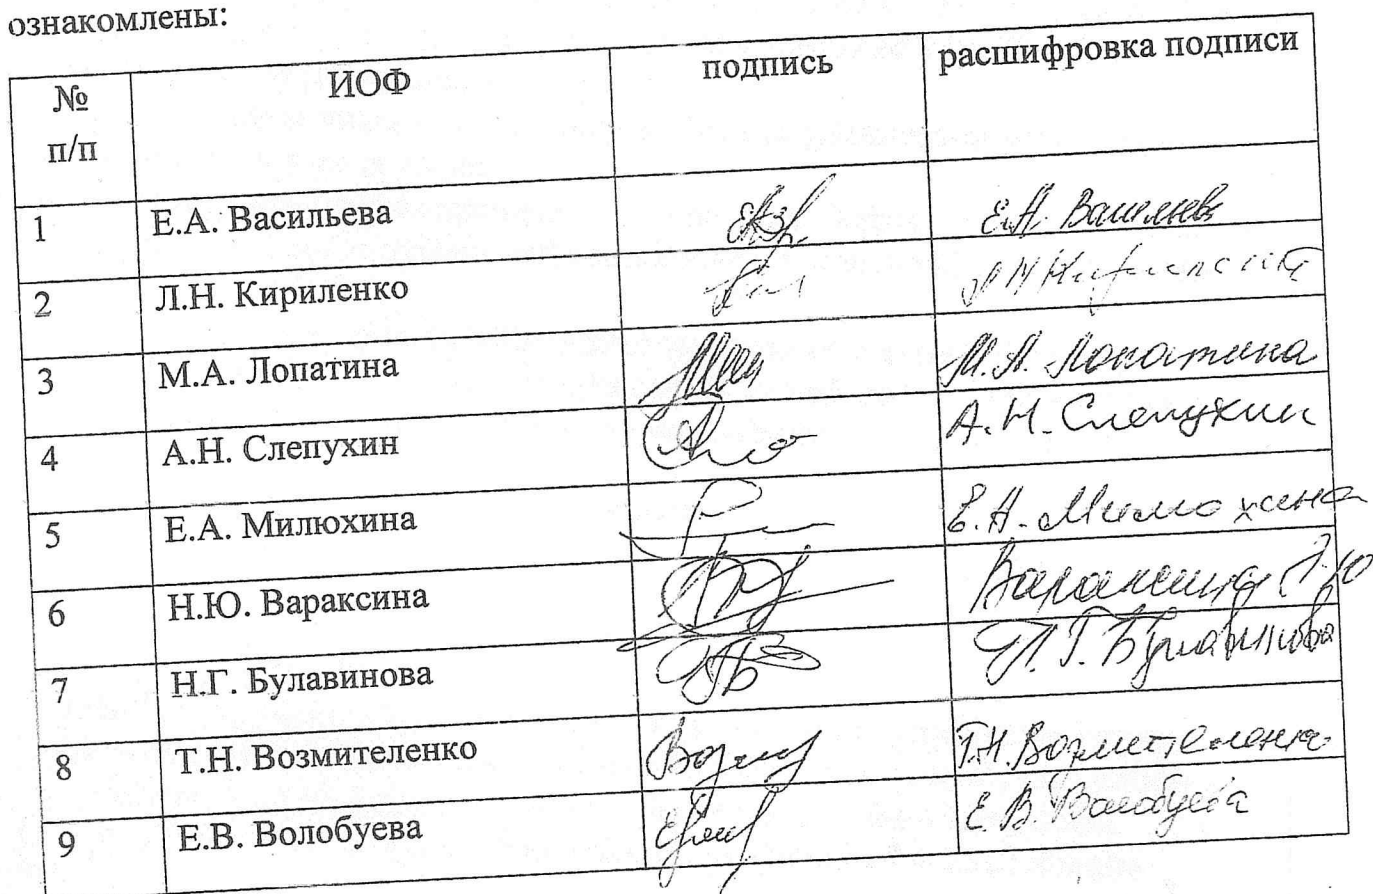 ознакомлены:
№ п/п ИОФ подпись расшифровка подписи
1 Е.А. Васильева Е.А. Васильева
2 Л.Н. Кириленко Л Н Кириленко
3 М.А. Лопатина М.А. Лопатина
4 А.Н. Слепухин А.Н. Слепухин
5 Е.А. Милюхина Е.А. Милюхина
6 Н.Ю. Вараксина Вараксина
7 Н.Г. Булавинова Н.Г. Булавинова
8 Т.Н. Возмителенко Т.Н. Возмителенко
9 Е.В. Волобуева Е.В. Волобуева